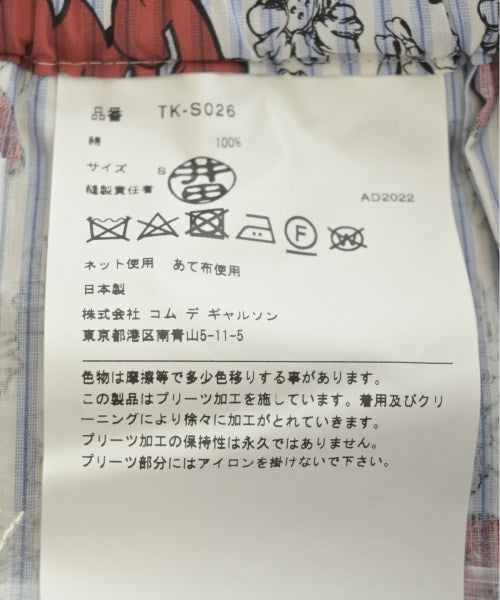 品番 TK-S026
綿 100%
サイズ S
縫製責任者 井田
AD2022
F W
ネット使用 あて布使用
日本製
株式会社 コム デ ギャルソン
東京都港区南青山5-11-5
色物は摩擦等で多少色移りする事があります。
この製品はプリーツ加工を施しています。着用及びクリ
ーニングにより徐々に加工がとれていきます。
プリーツ加工の保持性は永久ではありません。
プリーツ部分にはアイロンを掛けないで下さい。